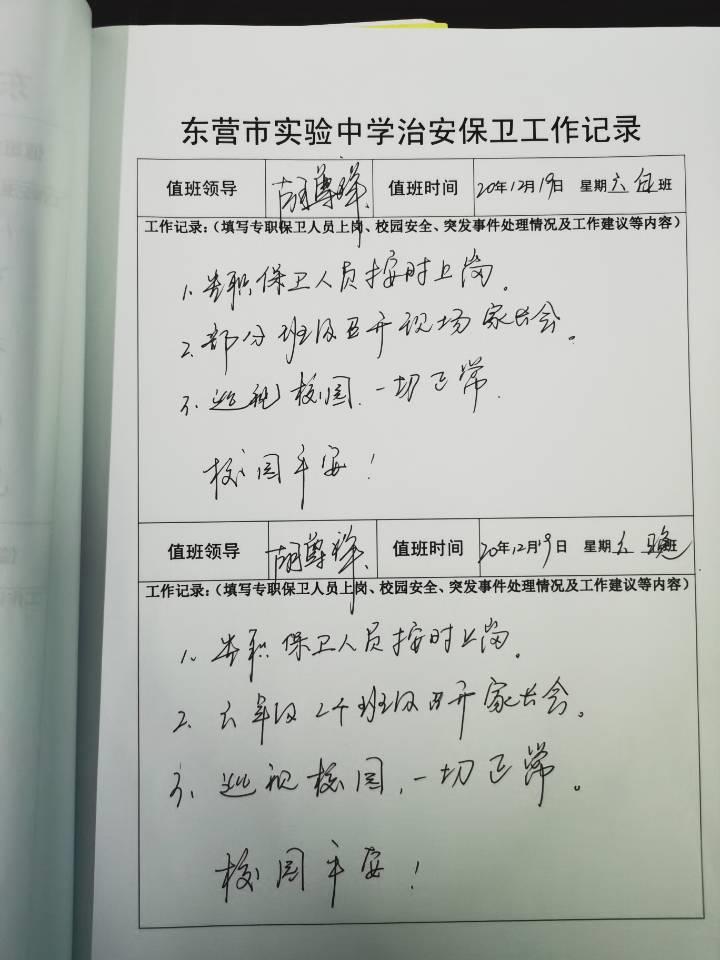 东营市实验中学治安保卫工作记录
值班领导 胡尊祥 值班时间 20年12月19日 星期六 白班
工作记录:(填写专职保卫人员上岗、校园安全、突发事件处理情况及工作建议等内容)
1、专职保卫人员按时上岗。
2、部分班级召开现场家长会。
3、巡视校园,一切正常.
校园平安!
值班领导 胡尊祥 值班时间 20年12月19日 星期六 晚班
工作记录:(填写专职保卫人员上岗、校园安全、突发事件处理情况及工作建议等内容)
1、专职保卫人员按时上岗。
2、六年级2个班级召开家长会。
3、巡视校园,一切正常。
校园平安!